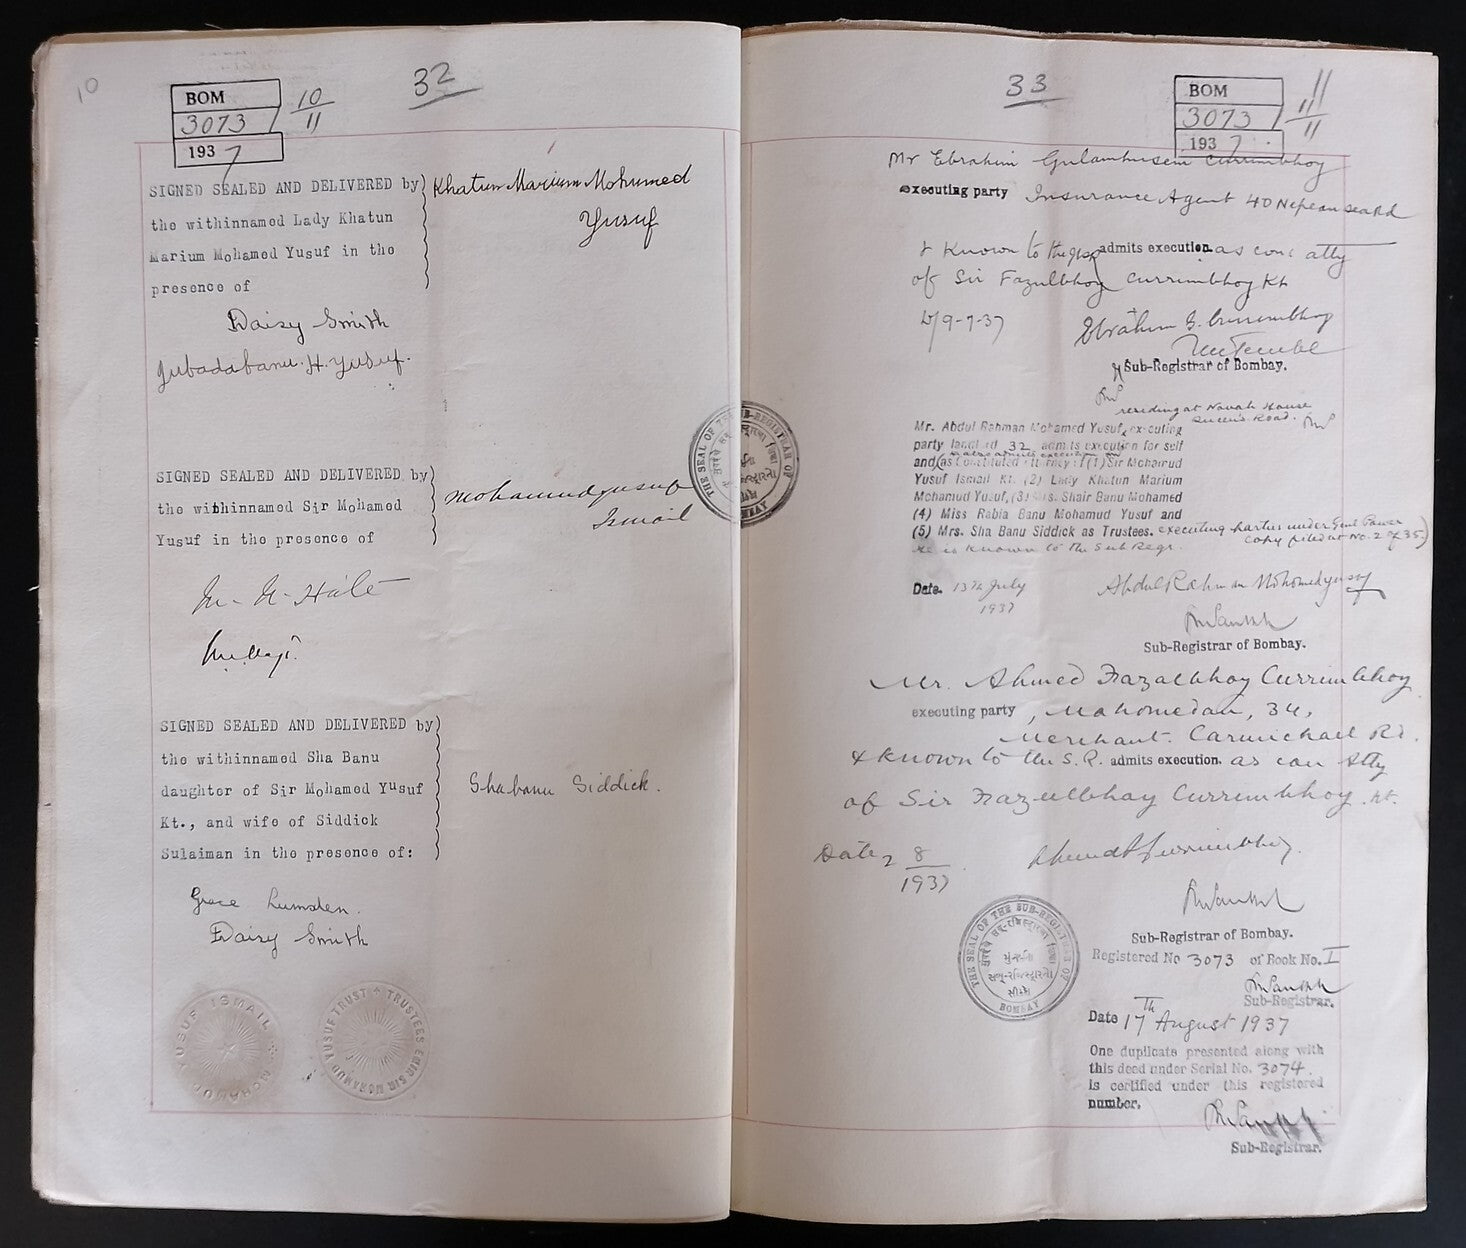 10
32
BOM
3073
1937
10
11
SIGNED SEALED AND DELIVERED by
the withinnamed Lady Khatun
Marium Mohamed Yusuf in the
presence of
Khatun Marium Mohumed
Yusuf
Daisy Smith
Jubadabanu. H. Yusuf.
SIGNED SEALED AND DELIVERED by
the withinnamed Sir Mohamed
Yusuf in the presence of
Mohamudyusuf
Ismail
SIGNED SEALED AND DELIVERED by
the withinnamed Sha Banu
daughter of Sir Mohamed Yusuf
Kt., and wife of Siddick
Sulaiman in the presence of:
Shabanu Siddick.
Grace Lumsden.
Daisy Smith
MOHAMUD YUSUF ISMAIL
YUSUF TRUST TRUSTEES SIR MOHAMUD
THE SEAL OF THE SUB-REGISTRAR OF
BOMBAY
33
BOM
3073
1937
11
11
11
Mr Ebrahim Gulamhusein Currimbhoy
executing party Insurance Agent 40 Nepean Sea Rd
& Known to the admits execution as atty
of Sir Fazulbhoy Currimbhoy Kt
9-7-37
Ebrahim G. Currimbhoy
Sub-Registrar of Bombay.
residing at House
Queen's Road.
Mr. Abdul Rahman Mohamed Yusuf, executing
party 32 admits execution for self
and (as Constituted Attorney of (1) Sir Mohamud
Yusuf Ismail Kt. (2) Lady Khatun Marium
Mohamud Yusuf, (3) Mrs. Shair Banu Mohamed
(4) Miss Rabia Banu Mohamud Yusuf and
(5) Mrs. Sha Banu Siddick as Trustees. executing parties under Genl Power
copy filed at No. 2 of 35.)
He is known to the Sub Regr.
Date. 13th July
1937
Abdul Rahman Mohomedyusuf
Sub-Registrar of Bombay.
Mr. Ahmed Fazulbhoy Currimbhoy
executing party, Mahomedan, 34,
Merchant. Carmichael Rd.
& known to the S.R. admits execution. as con Atty
of Sir Fazulbhoy Currimbhoy. Kt.
Date 2 8
1937
Ahmed F Currimbhoy.
Sub-Registrar of Bombay.
THE SEAL OF THE SUB-REGISTRAR OF
BOMBAY
Registered No 3073 of Book No. I
Sub-Registrar.
Date 17th August 1937
One duplicate presented along with
this deed under Serial No. 3074.
is certified under this registered
number.
Sub-Registrar.